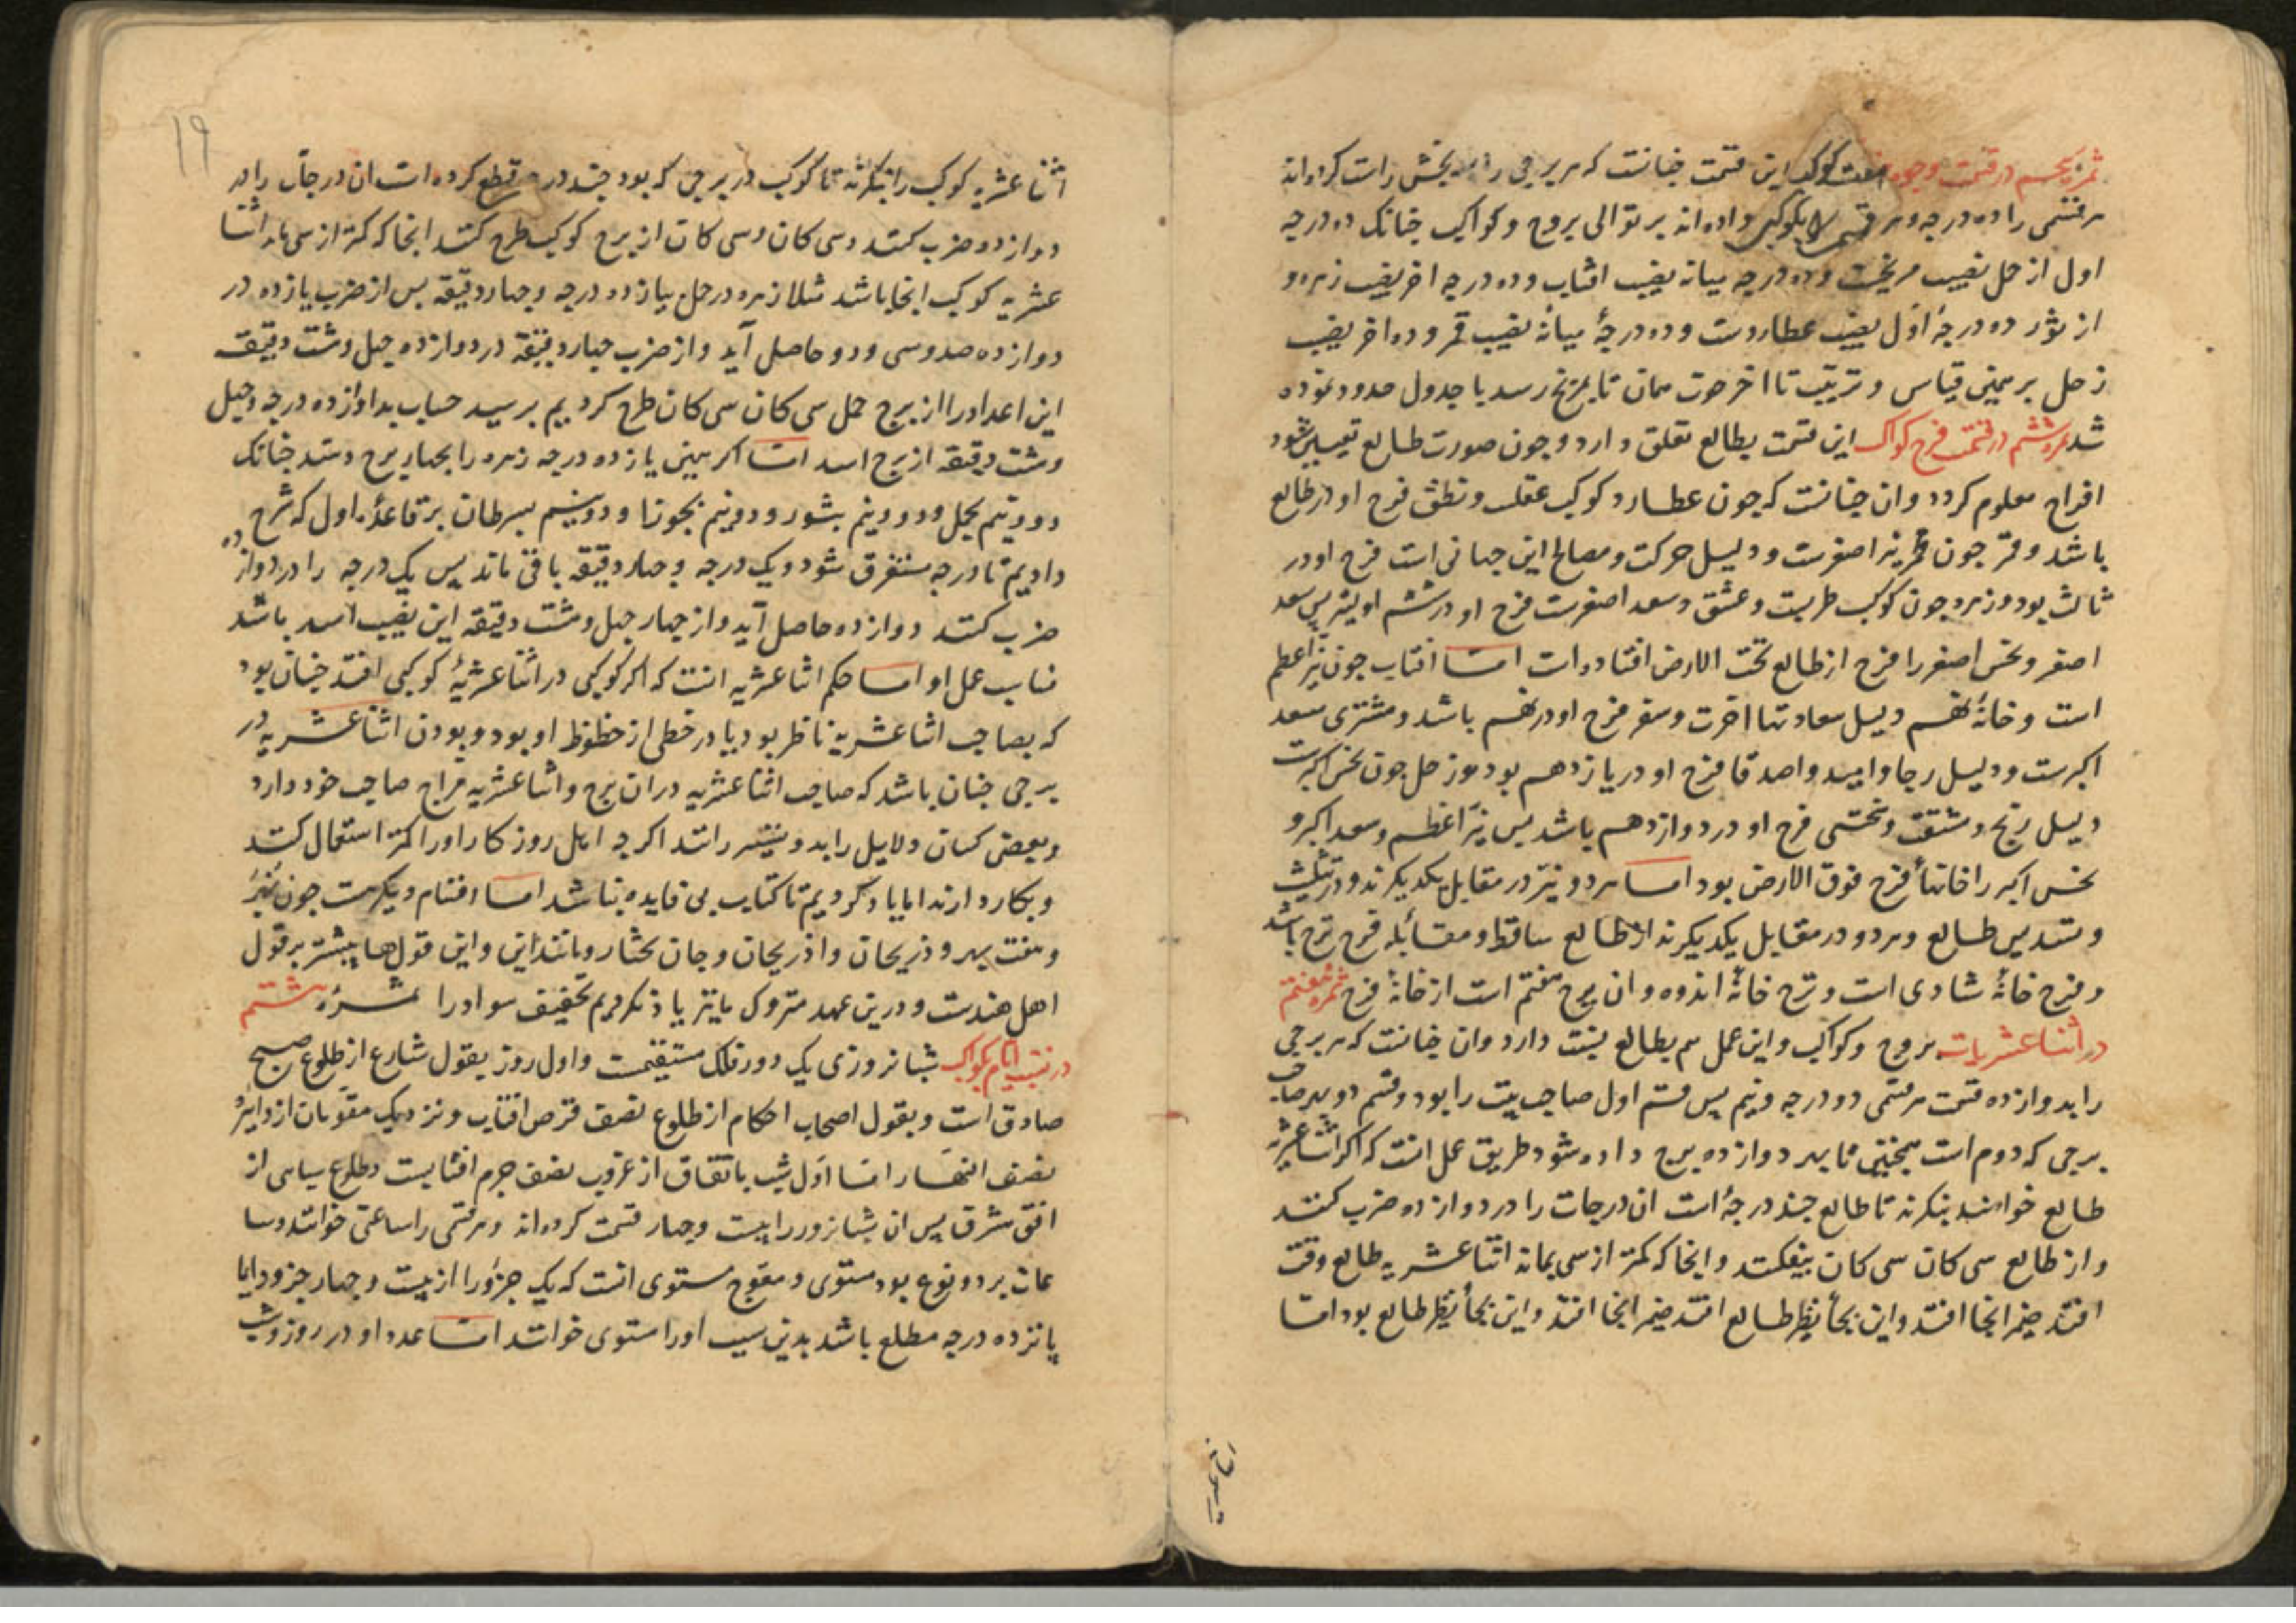 ثمره پنجم در قسمت وجوه هفت کوکب این قسمت چنانست که هر برجی را بسه بخش راست کرده‌اند
هر قسمی را ده درجه و هر قسمی را بکوکبی داده‌اند بر توالی بروج و کواکب چنانک ده درجه
اول از حمل نصیب مریخست و ده درجه میانه نصیب افتاب و ده درجه اخر نصیب زهره و
از ثور ده درجهٔ اول نصیب عطاردست و ده درجهٔ میانه نصیب قمر و ده اخر نصیب
زحل بر همین قیاس و ترتیب تا اخر حوت همان تا بمریخ رسد با جدول حدود نموده
شد ثمره ششم در قسمت فرح کواکب این قسمت بطالع تعلق دارد و چون صورت طالع تعیین شود
افراح معلوم کردد و ان چنانست که چون عطارد کوکب عقلست و نطق فرح او در طالع
باشد و قمر چون نیر اصغرست و دلیل حرکت و مصالح این جهانی است فرح او در
ثالث بود و زهره چون کوکب طربست و عشق و سعد اصغرست فرح او در
اصغر و نحس اصغر را فرح از طالع تحت الارض افتاده است اما افتاب چون نیر اعظم
است و خانهٔ نهم دلیل سعادتها اخرت و سفر فرح او در نهم باشد و مشتری سعد
اکبرست و دلیل رجا و امید و اصدقا فرح او در یازدهم بود و زحل چون نحس اکبرست
دلیل رنج و مشقت و نحسی فرح او در دوازدهم باشد پس نیر اعظم و سعد اکبر و
نحس اکبر را خانهاء فرح فوق الارض بود اما هر دو نیر در مقابل یکدیکرند و در تثلیث
و تسدیس طالع و هر دو در مقابل یکدیکرند از طالع ساقط و مقابلهٔ فرح ترح باشد
و فرح خانهٔ شادی است و ترح خانهٔ اندوه و ان برج هفتم است از خانهٔ فرح ثمره هفتم
در اثنا عشریات بروج و کواکب و این عمل هم بطالع نسبت دارد و ان چنانست که هر برجی
را بدوازده قسمت هر قسمی دو درجه و نیم پس قسم اول صاحب بیت را بود و قسم دو بر صاحب
برجی که دوم است همچنین تا بهر دوازده برج داده شود طریق عمل انست که اکر اثنا عشریه
طالع خواهند بنکرند تا طالع چند درجهٔ است ان درجات را در دوازده ضرب کنند
و از طالع سی کان سی کان بیفکنند و انجا که کمتر از سی بماند اثنا عشریه طالع وقت
افتد ضمیر انجا افتد و این بجاء نظر طالع افتد ضمیر انجا افتد و این بجاء نظر طالع بود اما
۱۹
اثنا عشریه کوکب را بنکرند تا کوکب در برجی که بود چند درجه قطع کرده است ان درجات را در
دوازده ضرب کنند و سی کان و سی کان از برج کوکب طرح کنند انجا که کمتر از سی ماند اثنا
عشریه کوکب انجا باشد مثلا زهره در حمل بیازده درجه و چهار دقیقه پس از ضرب یازده در
دوازده صد و سی و دو حاصل آید و از ضرب چهار دقیقه در دوازده چهل و هشت دقیقه
این اعداد را از برج حمل سی کان سی کان طرح کردیم برسید حساب بدوازده درجه و چهل
و هشت دقیقه از برج اسد اما اکر بینی یازده درجه زهره را بچهار برج دهند چنانک
دو و نیم بحمل و دو و نیم بثور و دو و نیم بجوزا و دو و نیم بسرطان بر قاعدهٔ اول که شرح
دادیم تا ده درجه متفرق شود و یک درجه و چهار دقیقه باقی ماند پس یک درجه را در دوازده
ضرب کنند دوازده حاصل آید و از چهار چهل و هشت دقیقه این نصیب اسد باشد
عمل او اما حکم اثنا عشریه انست که اکر کوکبی در اثنا عشریهٔ کوکبی افتد چنان بود
که بصاحب اثنا عشریه ناظر بود یا در حظی از حظوظ او بود و بودن اثنا عشریه در
برجی چنان باشد که صاحب اثنا عشریه در ان برج و اثنا عشریه مزاج صاحب خود دارد
و بعضی کسان دلایل زاید و بیشتر رانند اکرچه اهل روزکار او را کمتر استعمال کنند
و بکار دارند اما یاد کردیم تا کتاب بی فایده نباشد اما اقسام دیکرست چون نیم
و هفت بهر و دریجان و اذریجان و جان بختار و مانند این و این قولها بیشتر بر قول
اهل هندست و درین عهد متروک ما نیز یاد نکردیم تخفیف سواد را ثمره هشتم
در نسبت ایام بکواکب شبانروزی یک دور فلک مستقیمست و اول روز بقول شارع از طلوع صبح
صادق است و بقول اصحاب احکام از طلوع نصف قرص افتاب و نزدیک مقومان از دایره
نصف النهار اما اول شب باتفاق از غروب نصف جرم افتابست و طلوع سیاهی از
افق مشرق پس ان شبانروز را بیست و چهار قسمت کرده‌اند و هر قسمی را ساعتی خوانند و سا
عات بر دو نوع بود مستوی و معوج مستوی انست که یک جزو را از بیست و چهار جزو دایما
پانزده درجه مطلع باشد بدین سبب او را مستوی خوانند اما عدد او در روز و شب